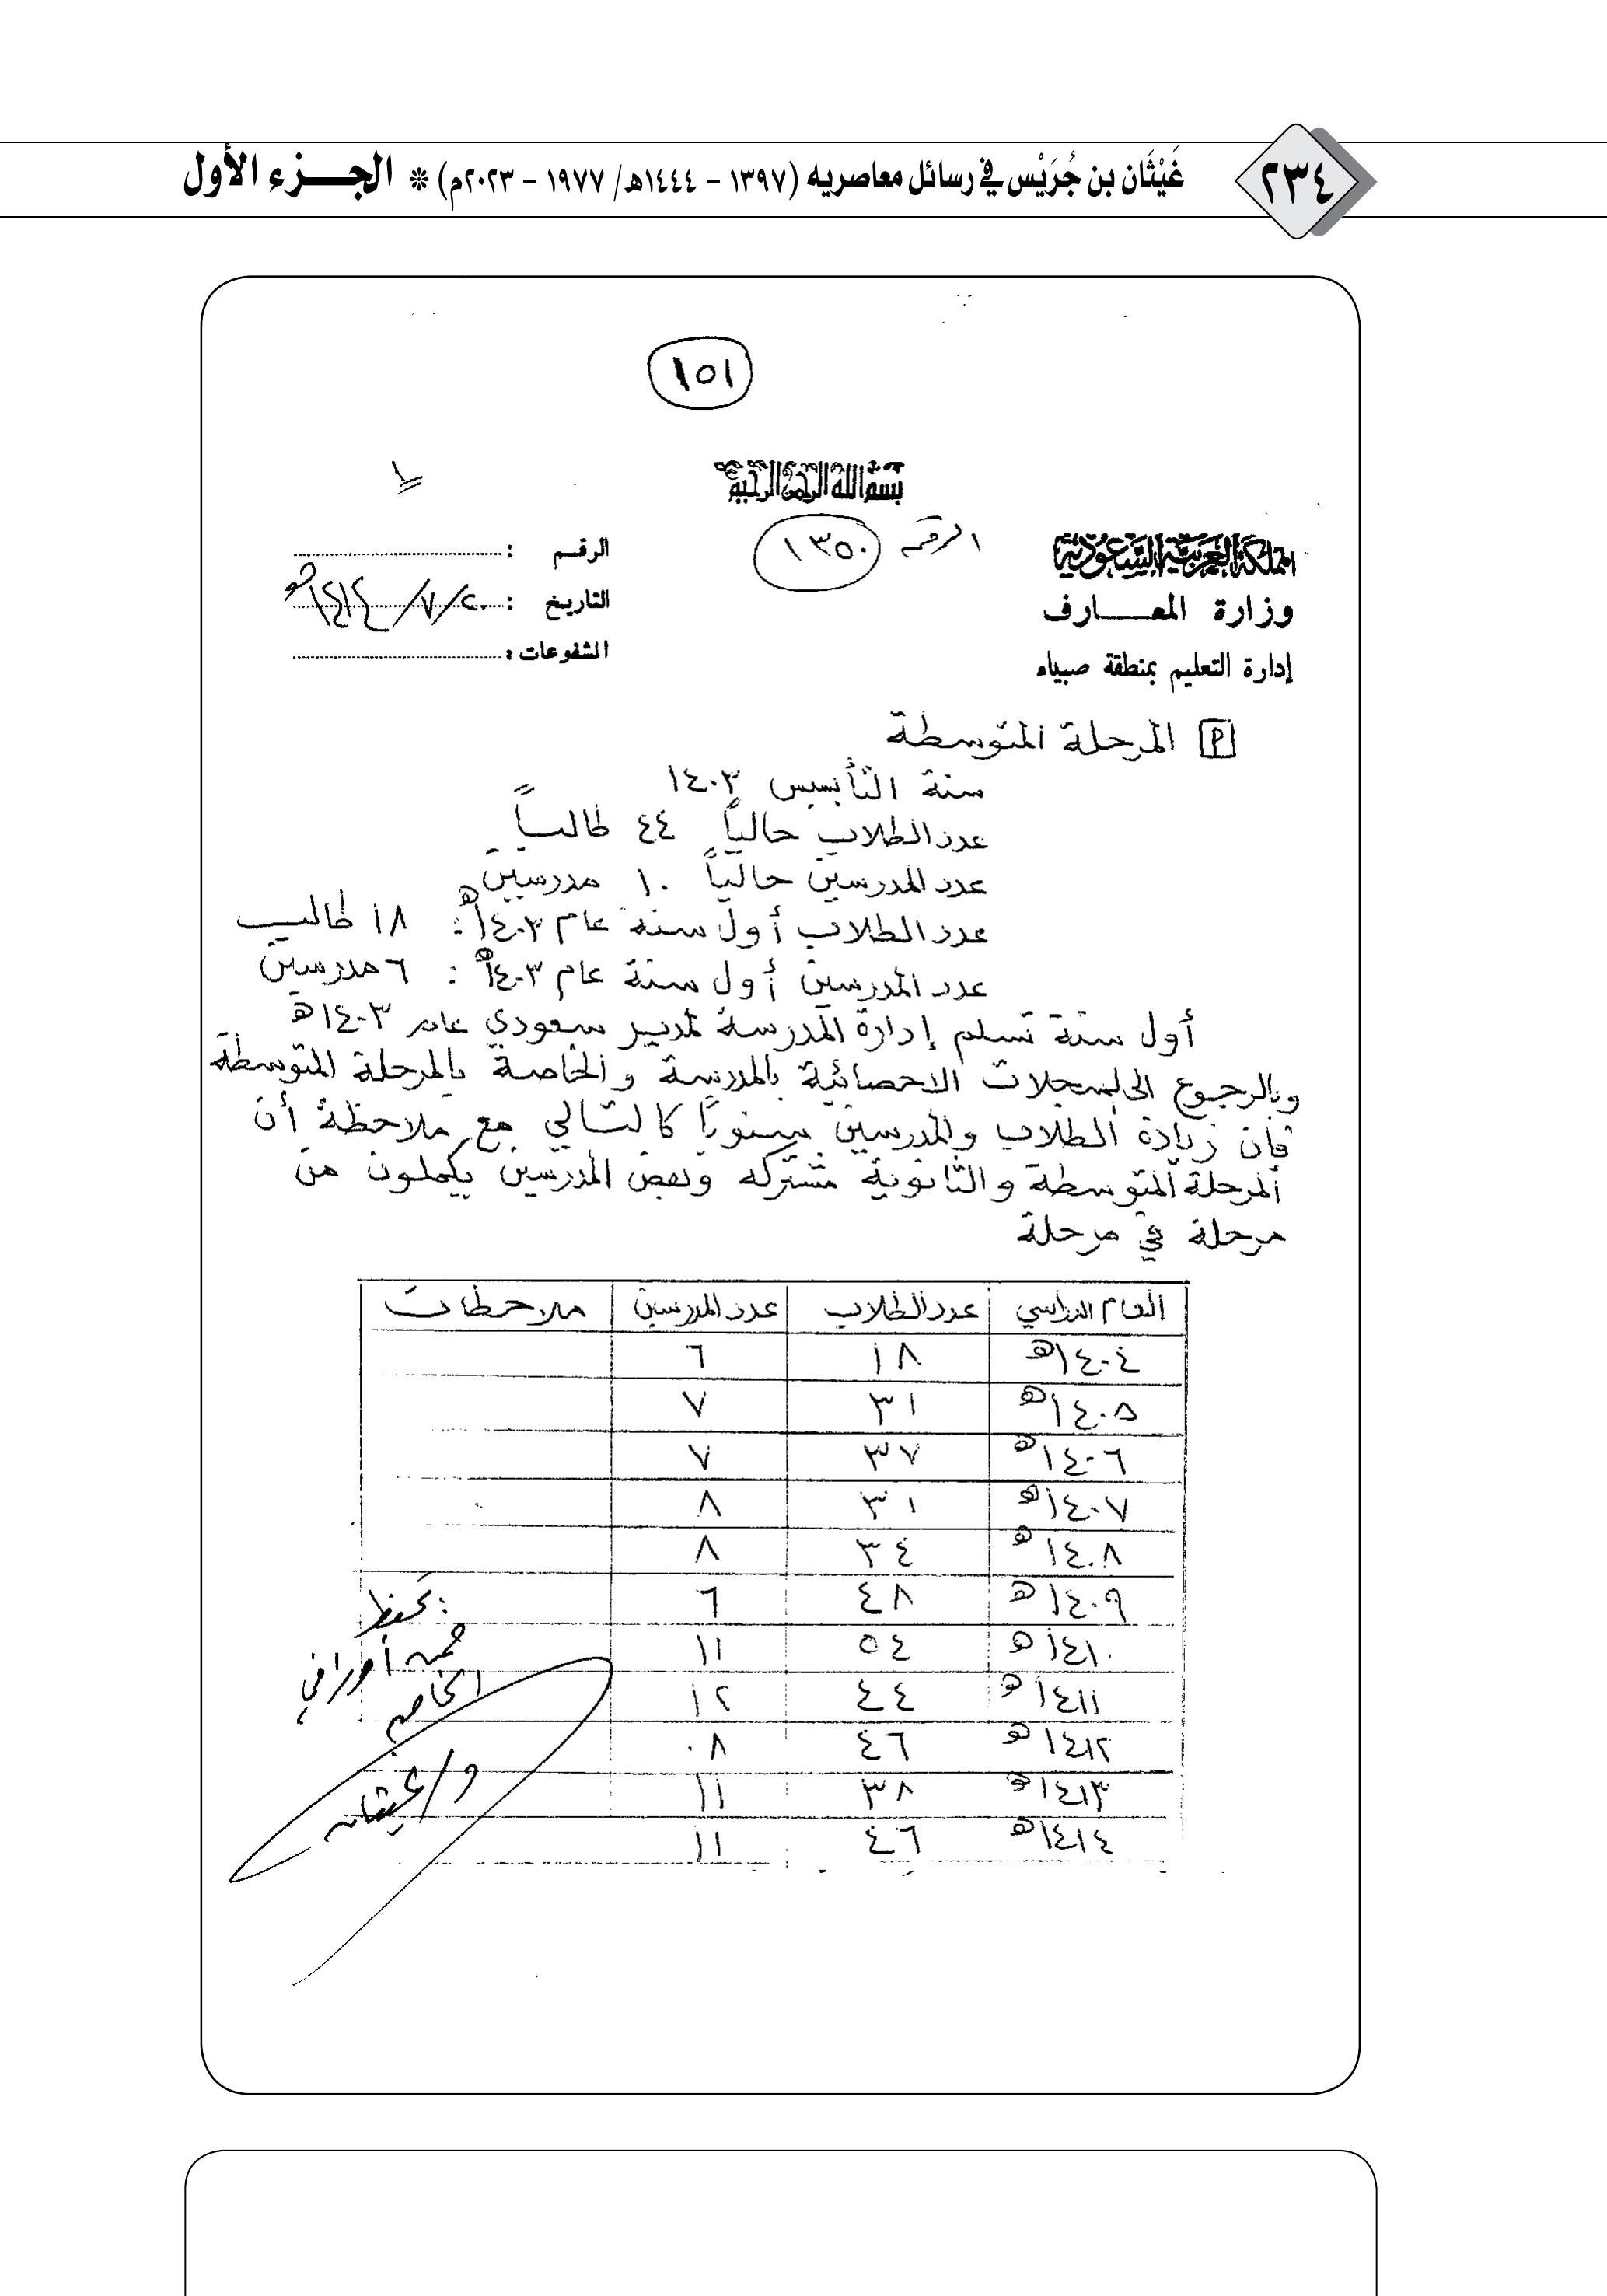 ٢٣٤
غَيْثَان بن جُرَيْس في رسائل معاصريه (١٣٩٧ - ١٤٤٤هـ/ ١٩٧٧ - ٢٠٢٣م) * الجـــزء الأول
١٥١
بسم الله الرحمن الرحيم
المملكة العربية السعودية
وزارة المعـــارف
إدارة التعليم بمنطقة صبياء
الرقم ١٣٥٠
الرقـم :
التاريخ : ٢٠/٧/١٤١٤هـ
المشفوعات :
أ المرحلة المتوسطة
سنة التأسيس ١٤٠٣
عدد الطلاب حالياً ٤٤ طالباً
عدد المدرسين حالياً ١٠ مدرسين
عدد الطلاب أول سنة عام ١٤٠٣هـ : ١٨ طالب
عدد المدرسين أول سنة عام ١٤٠٣هـ : ٦ مدرسين
أول سنة تسلم إدارة المدرسة لمدير سعودي عام ١٤٠٣هـ
وبالرجوع الى سجلات الاحصائية بالمدرسة والخاصة بالمرحلة المتوسطة
فإن زيادة الطلاب والمدرسين سنوياً كالتالي مع ملاحظة أن
المرحلة المتوسطة والثانوية مشتركه وبعض المدرسين يكملون من
مرحلة في مرحلة
العام الدراسي عدد الطلاب عدد المدرسين ملاحظات
١٤٠٤هـ ١٨ ٦
١٤٠٥هـ ٣١ ٧
١٤٠٦هـ ٣٧ ٧
١٤٠٧هـ ٣١ ٨
١٤٠٨هـ ٣٤ ٨
١٤٠٩هـ ٤٨ ٦
١٤١٠هـ ٥٤ ١١
١٤١١هـ ٤٤ ١٢
١٤١٢هـ ٤٦ ٠٨
١٤١٣هـ ٣٨ ١١
١٤١٤هـ ٤٦ ١١
يحفظ :
ضمن أوراقي
الخاصة
د/غيثان